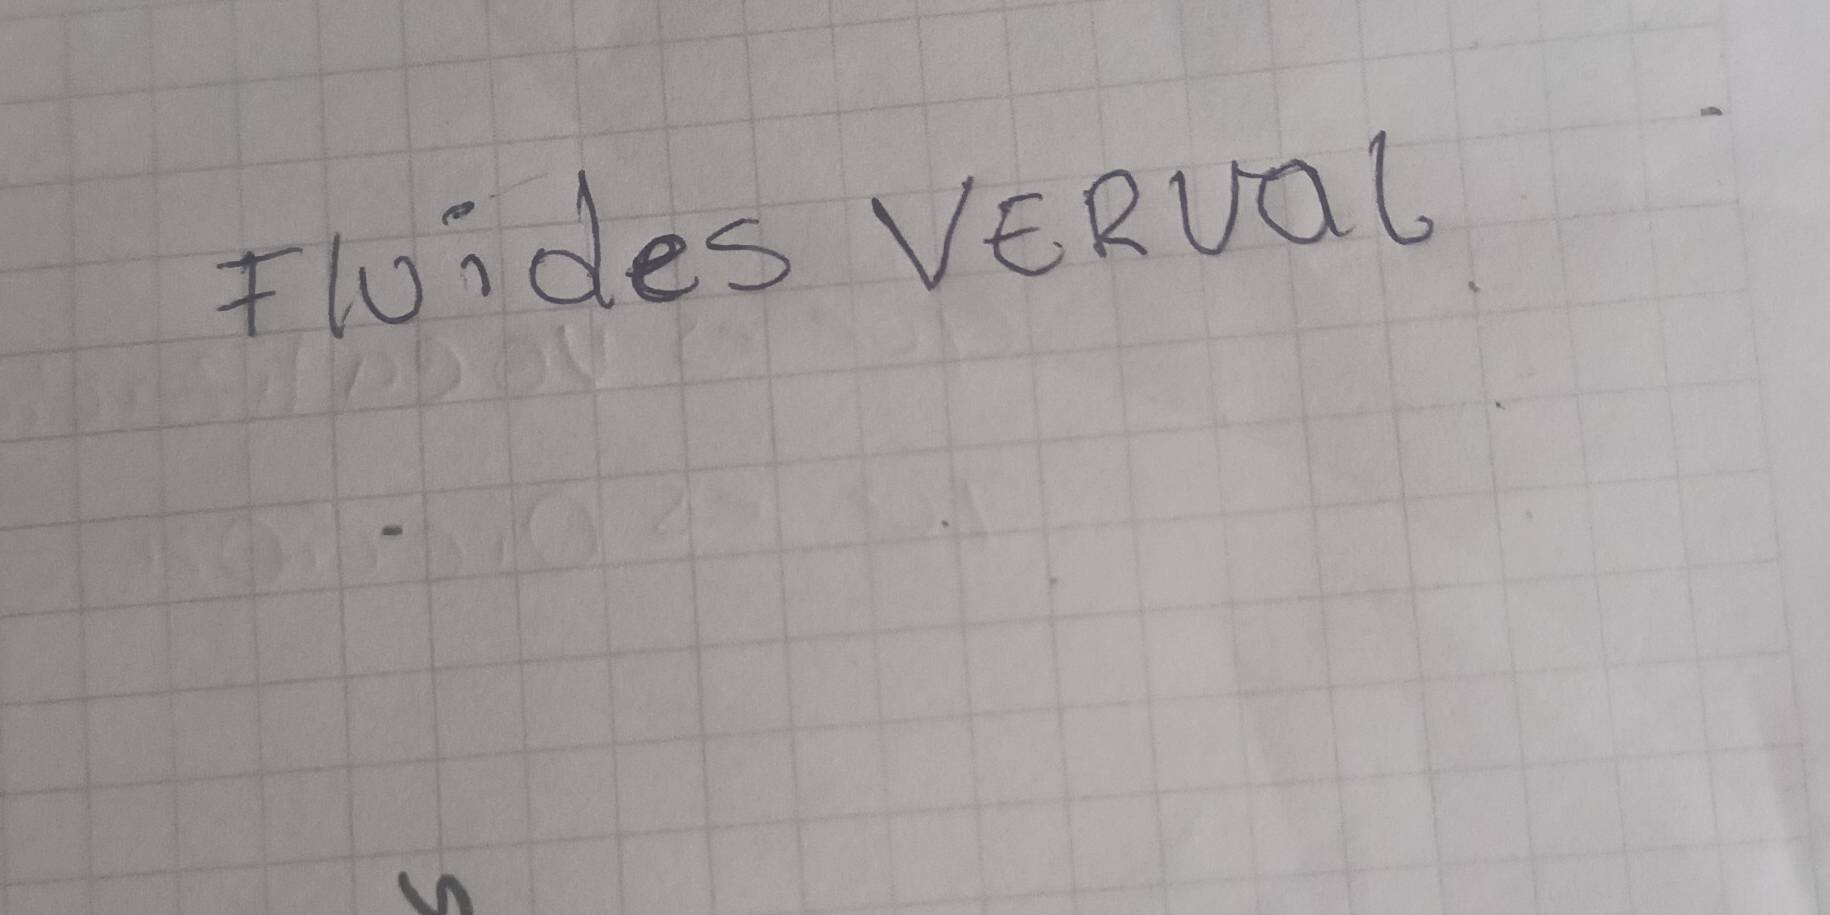 Fluides VERVAL